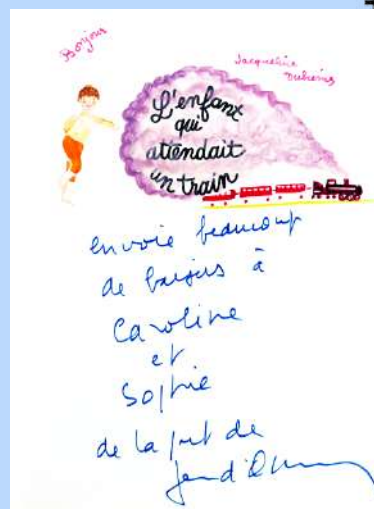 Bonjour
Jacqueline
L'enfant
qui
attendait
un train
envoie beaucoup
de baisers à
Caroline
et
Sophie
de la part de
Jean d'